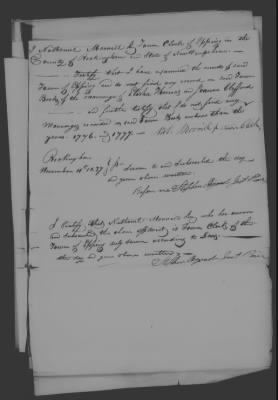 I Nathaniel Morrill Jr Town Clerk of Epping in the
County of Rockingham and State of New Hampshire
Certify that I have examined the records of said
Town of Epping and do not find any record on said Town
Books of the marriage of Thomas and Clifford
and further certify that I do not find any
Marriages recorded on said Town Books between the
years 1776 and 1777 Morrill Jr Town Clerk
Rockingham
November 11th 1837 sworn to and subscribed the day
and year above written
Before me Just Peace
I Certify that Nathaniel Morrill Jr who has sworn
and subscribed the above affidavit is Town Clerk of the
Town of Epping duly sworn according to Law
the day and year above written
Just Peace